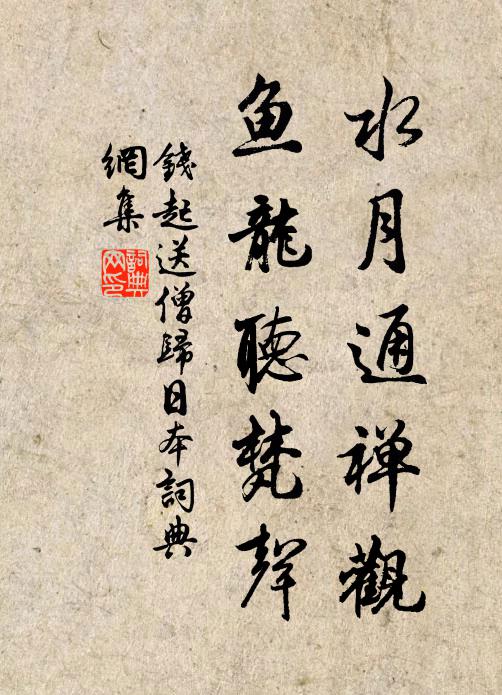 水月通禅觀
鱼龍聽梵聲
錢起送僧歸日本詞典
網集
詞典
网印